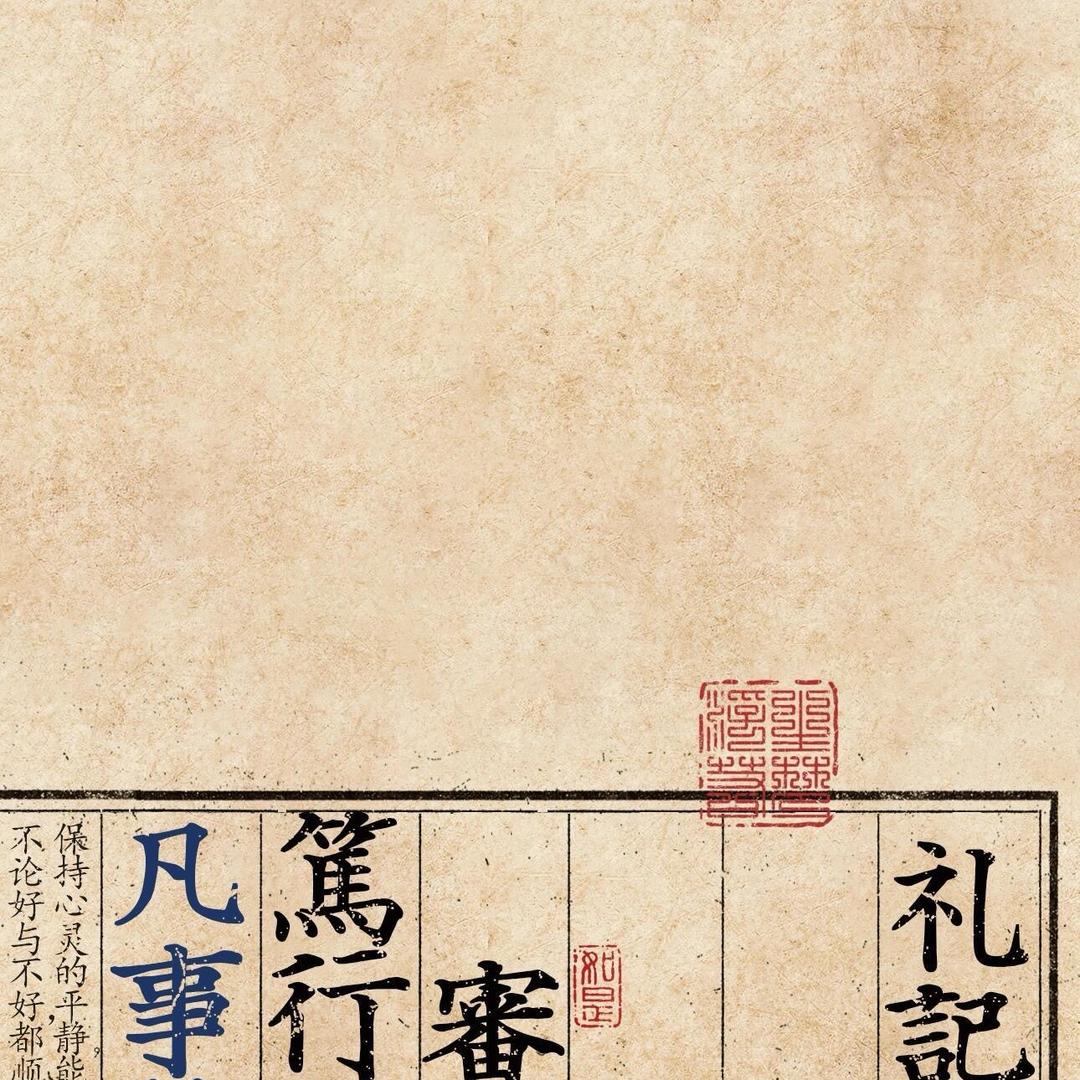 礼記
如是
審
篤行
凡事
保持心灵的平静,能
不论好与不好都顺